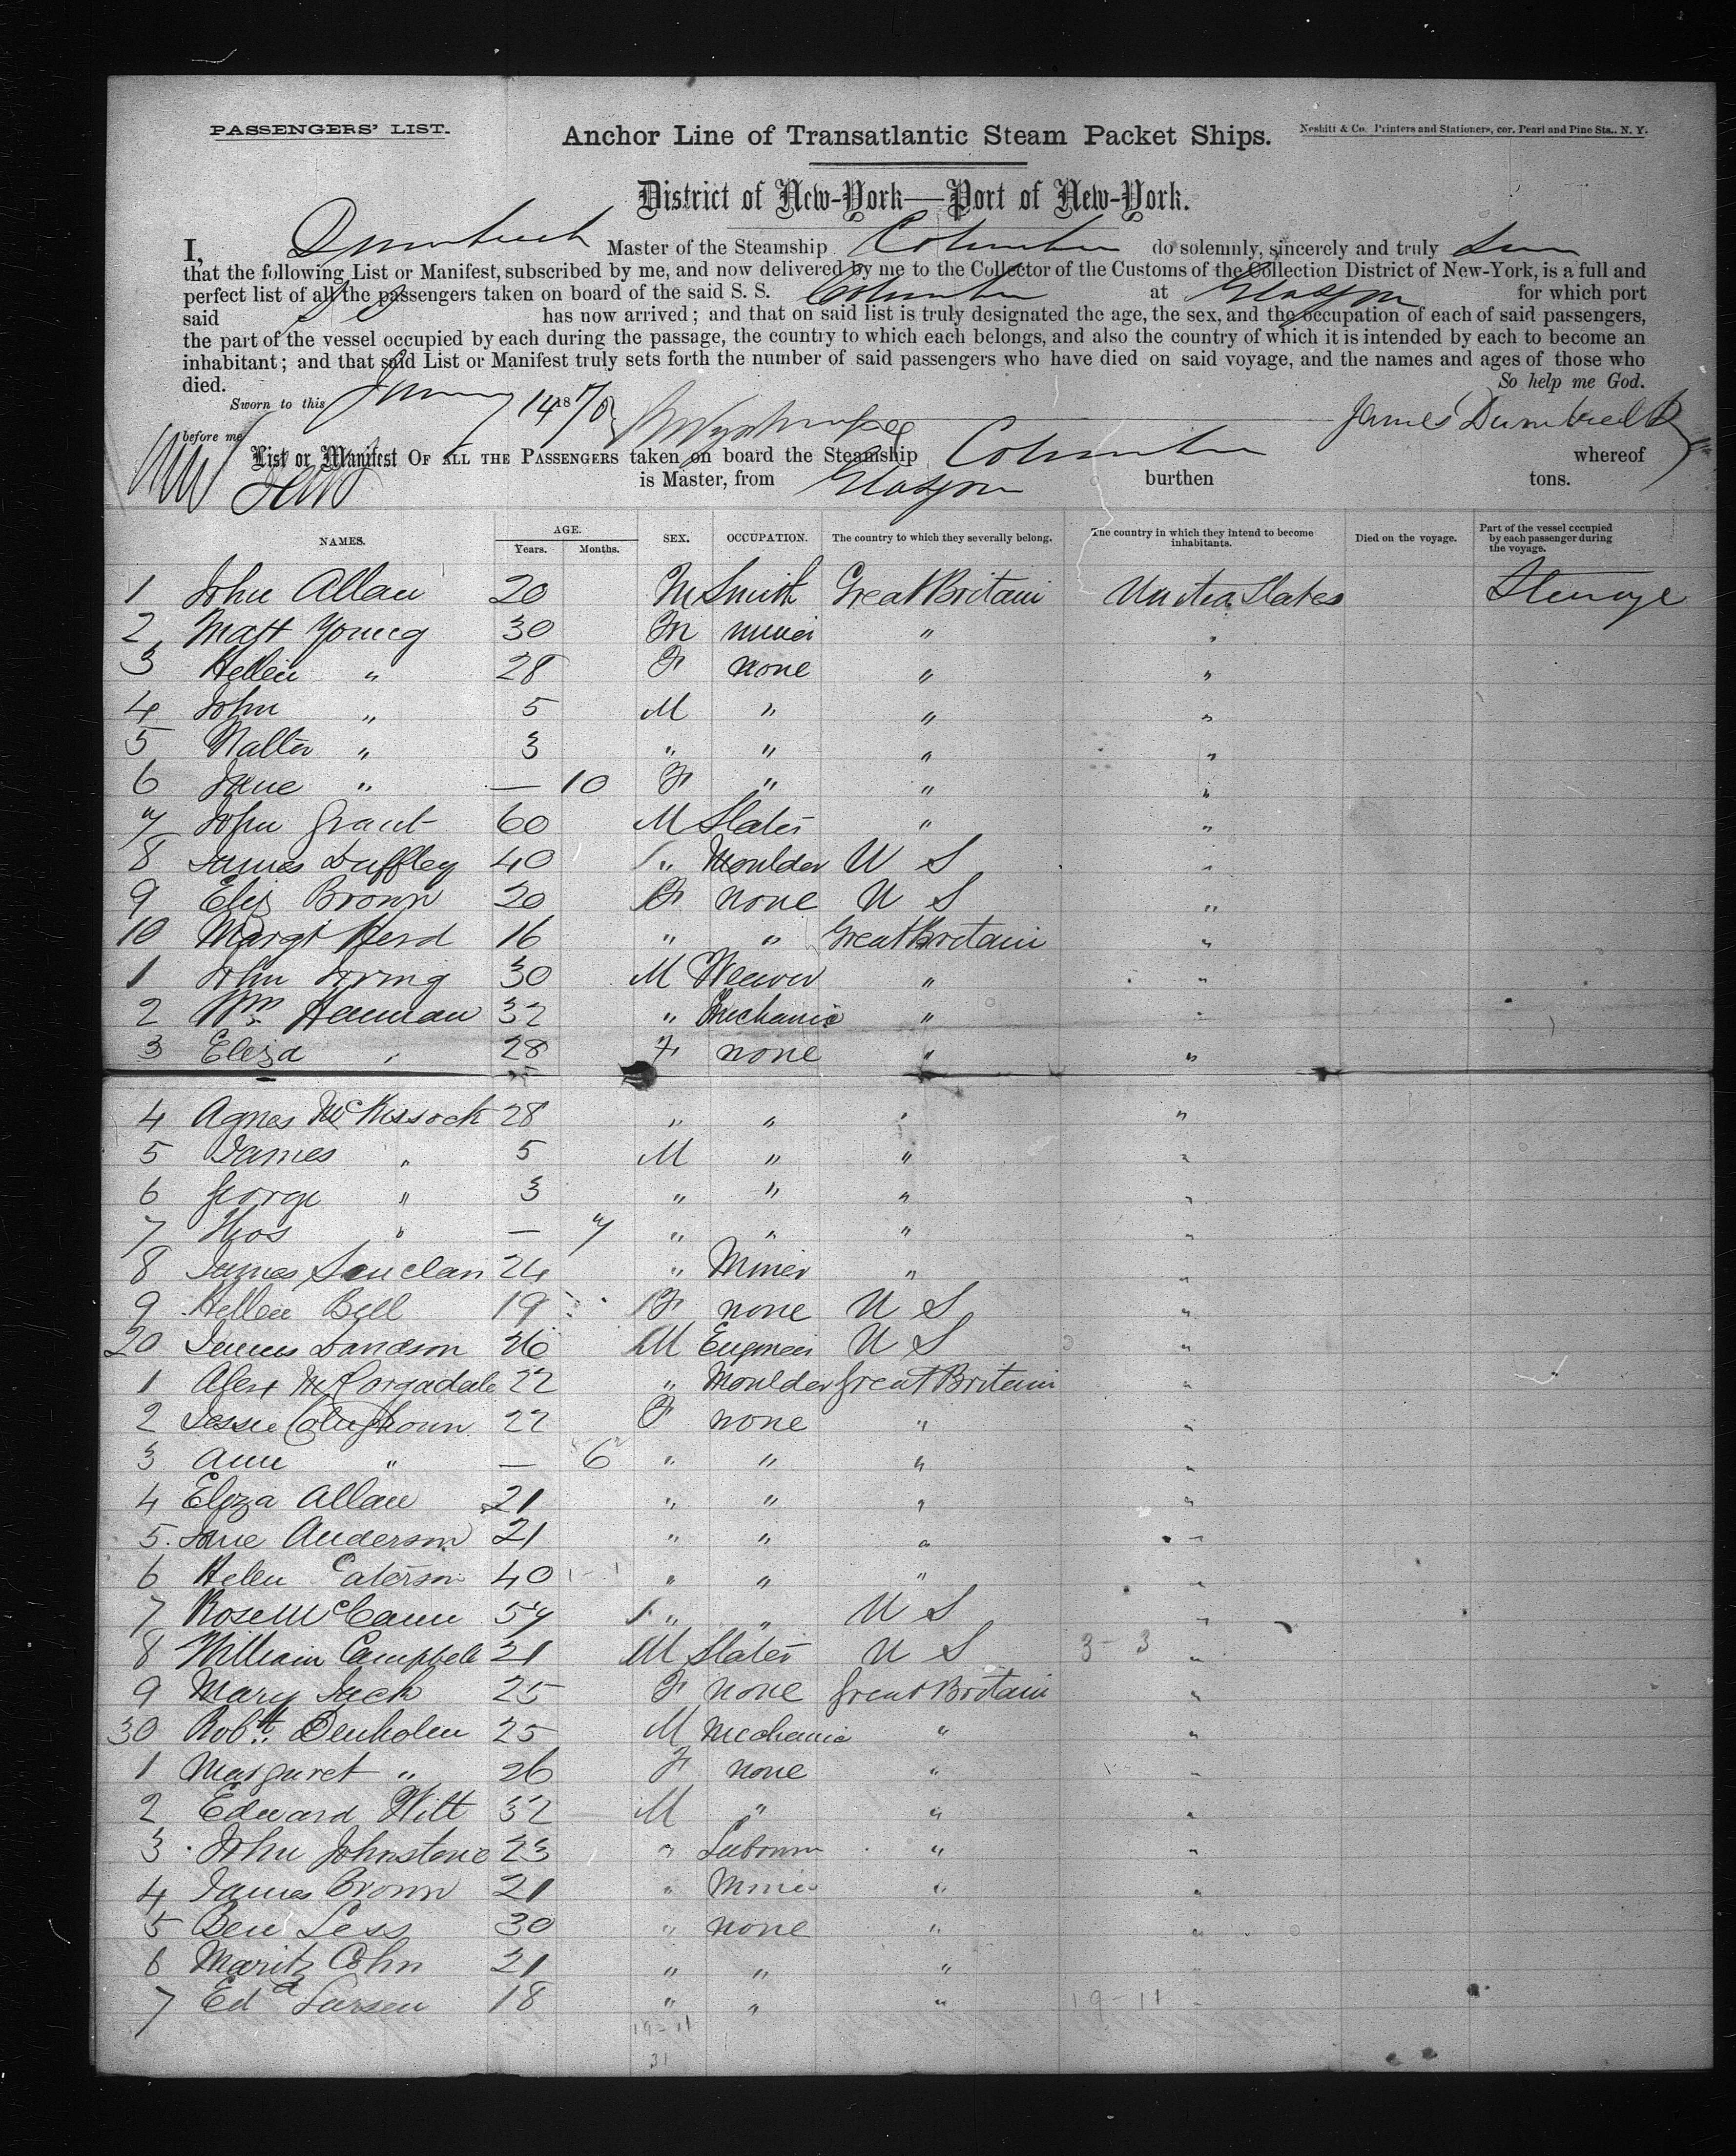 PASSENGERS' LIST.
Anchor Line of Transatlantic Steam Packet Ships.
Nesbitt & Co. Printers and Stationers, cor. Pearl and Pine Sts., N. Y.
District of New-York—Port of New-York.
I, Master of the Steamship Columbia do solemnly, sincerely and truly
that the following List or Manifest, subscribed by me, and now delivered by me to the Collector of the Customs of the Collection District of New-York, is a full and
perfect list of all the passengers taken on board of the said S. S. Columbia at Glasgow for which port
said has now arrived; and that on said list is truly designated the age, the sex, and the occupation of each of said passengers,
the part of the vessel occupied by each during the passage, the country to which each belongs, and also the country of which it is intended by each to become an
inhabitant; and that said List or Manifest truly sets forth the number of said passengers who have died on said voyage, and the names and ages of those who
died. So help me God.
Sworn to this 14 18
before me
List or Manifest OF ALL THE PASSENGERS taken on board the Steamship Columbia whereof
is Master, from Glasgow burthen tons.
NAMES. AGE. Years. Months. SEX. OCCUPATION. The country to which they severally belong. The country in which they intend to become inhabitants. Died on the voyage. Part of the vessel occupied by each passenger during the voyage.
1 John Allan 20 M Smith Great Britain United States Steerage
2 Matt Young 30 M miner " "
3 Hellen " 28 F none " "
4 John " 5 M " " "
5 Walter " 3 " " " "
6 Jane " — 10 F " " "
7 John Grant 60 M Slater " "
8 James Duffley 40 " Moulder U S "
9 Eliz Brown 20 F none U S "
10 Margt Herd 16 " " Great Britain "
1 John Irving 30 M Weaver " "
2 Wm Henman 32 " Mechanic " "
3 Eliza " 28 F none " "
4 Agnes McKissock 28 " " " "
5 James " 5 M " " "
6 George " 3 " " " "
7 Thos " — 7 " " " "
8 James Sinclair 24 " Miner " "
9 Hellen Bell 19 F none U S "
20 James Davidson 26 M Engineer U S "
1 Alex McCorqadale 22 " Moulder Great Britain "
2 Jessie Colughoun 22 F none " "
3 Ann " — 6 " " " "
4 Eliza Allan 21 " " " "
5 Jane Anderson 21 " " " "
6 Helen Paterson 40 " " " "
7 Rose McCann 57 " " U S "
8 William Campbell 21 M Slater U S 3-3 "
9 Mary Jack 25 F none Great Britain "
30 Robt. Denholm 25 M Mechanic " "
1 Margaret " 26 F none " "
2 Edward Witt 32 M " " "
3 John Johnstone 23 " Labourer " "
4 James Brown 21 " Miner " "
5 Ben Less 30 " none " "
6 Maritz Cohn 21 " " "
7 Edd Larsen 18 " " " 19-11
19-11
31